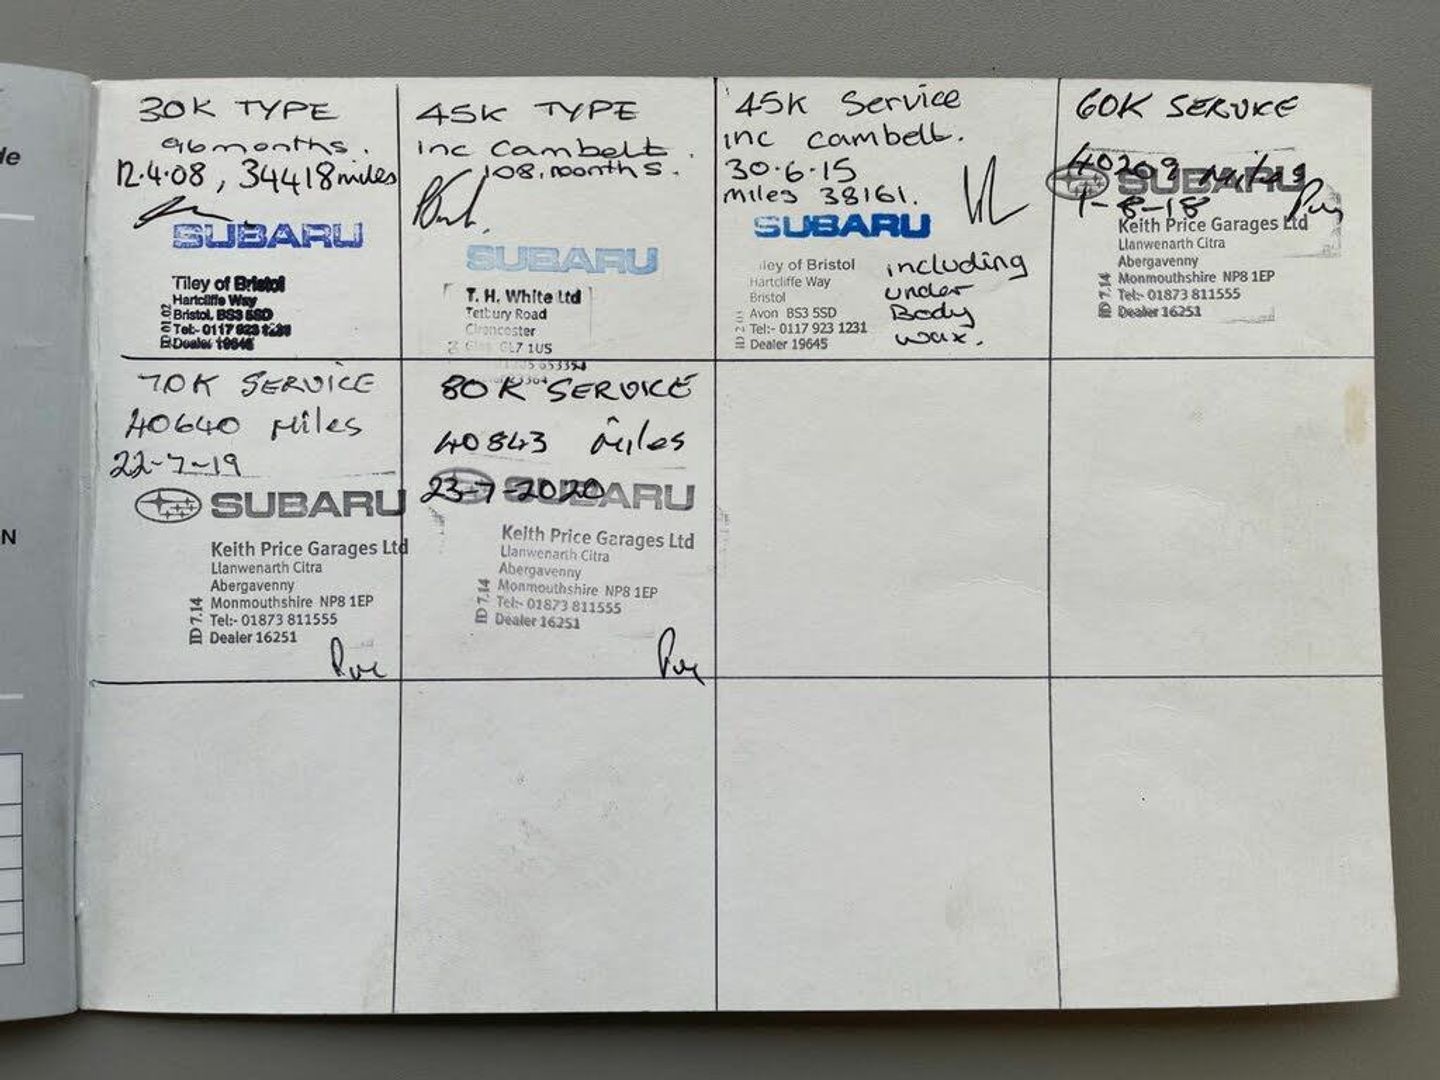 de
N
30K TYPE
96 months.
12.4.08, 34418 miles
SUBARU
Tiley of Bristol
Hartcliffe Way
Bristol, BS3 5SD
Tel:- 0117 923 1231
Dealer 19645
45K TYPE
inc Cambelt.
108, months.
SUBARU
T. H. White Ltd
Tetbury Road
Cirencester
GL7 1US
45K Service
inc cambelt.
30.6.15
miles 38161.
SUBARU
iley of Bristol
Hartcliffe Way
Bristol
Avon BS3 5SD
Tel:- 0117 923 1231
Dealer 19645
including
under
Body
wax.
60K SERVICE
40209 Miles
SUBARU
1-8-18
Keith Price Garages Ltd
Llanwenarth Citra
Abergavenny
Monmouthshire NP8 1EP
Tel:- 01873 811555
Dealer 16251
ID 7.14
70K SERVICE
40640 Miles
22-7-19
SUBARU
Keith Price Garages Ltd
Llanwenarth Citra
Abergavenny
Monmouthshire NP8 1EP
Tel:- 01873 811555
Dealer 16251
ID 7.14
80K SERVICE
40843 Miles
23-7-2020
SUBARU
Keith Price Garages Ltd
Llanwenarth Citra
Abergavenny
Monmouthshire NP8 1EP
Tel:- 01873 811555
Dealer 16251
ID 7.14